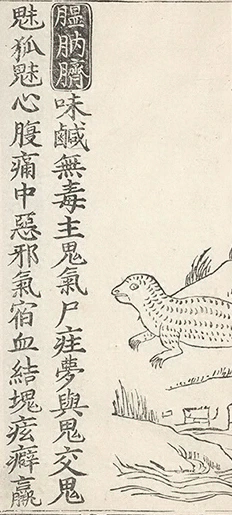 膃肭臍
味鹹無毒主鬼氣尸疰夢與鬼交鬼
魅狐魅心腹痛中惡邪氣宿血結塊痃癖羸